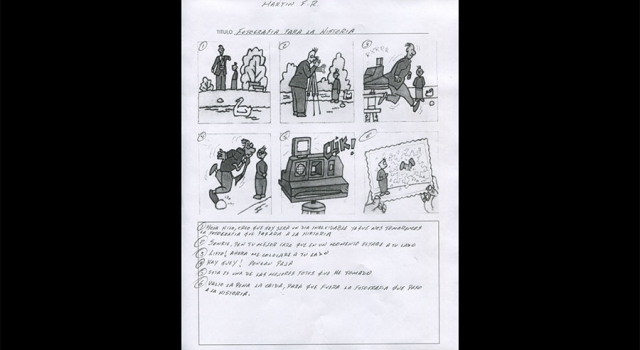 MARTIN F.R
TITULO: FOTOGRAFIA PARA LA HISTORIA
1
2
3
4
5
CLIK!
6
1 HIJO, CREO QUE HOY SERA UN DIA INOLVIDABLE YA QUE NOS TOMAREMOS
LA FOTOGRAFIA QUE PASARA A LA HISTORIA
2 SONRIE, PON TU MEJOR CARA QUE EN UN MOMENTO ESTARE A TU LADO
3 LISTO! AHORA ME COLOCARE A TU LADO
4 HAY GUEY!
5 ESTA ES UNA DE LAS MEJORES FOTOS QUE HE TOMADO
6 VALIO LA PENA LA CAIDA, PARA QUE FUERA LA FOTOGRAFIA QUE PASO
A LA HISTORIA.